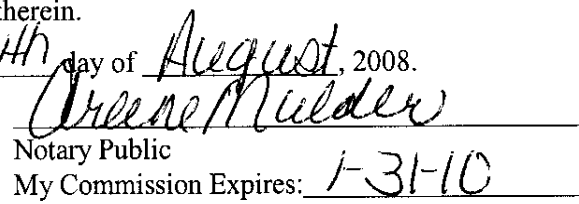 therein.
day of August, 2008.
Arlene Mulder
Notary Public
My Commission Expires: 1-31-10